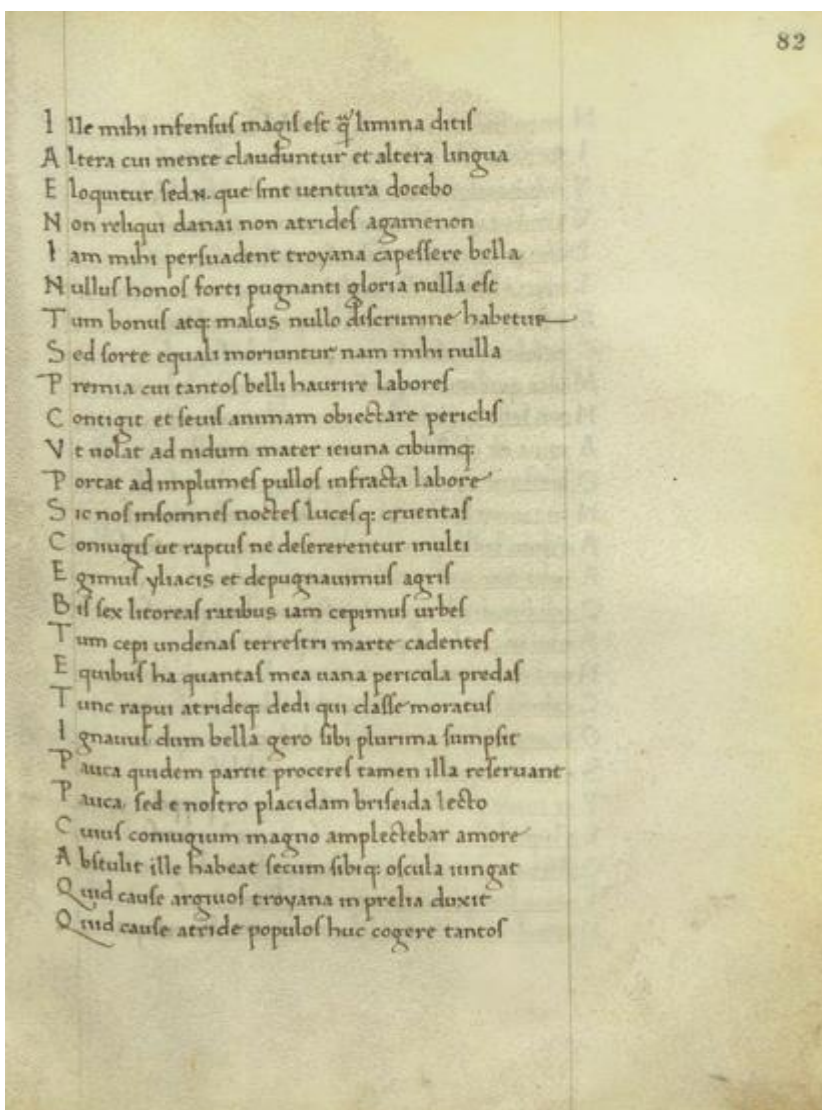 82
Ille mihi infensus magis est q̃ limina ditis
Altera cui mente clauduntur et altera lingua
Eloquitur sed .N. que sint uentura docebo
Non reliqui danai non atrides agamenon
Iam mihi persuadent troyana capessere bella
Nullus honos forti pugnanti gloria nulla est
Tum bonus atq; malus nullo discrimine habetur
Sed sorte equali moriuntur nam mihi nulla
Premia cui tantos belli haurire labores
Contigit et seuis animam obiectare periclis
Vt uolat ad nidum mater ieiuna cibumq;
Portat ad implumes pullos infracta labore
Sic nos insomnes noctes lucesq; cruentas
Coniugis ut raptus ne desererentur inulti
Egimus yliacis et depugnauimus agris
Bis sex litoreas ratibus iam cepimus urbes
Tum cepi undenas terrestri marte cadentes
E quibus ha quantas mea uana pericula predas
Tunc rapui atrideq; dedi qui classe moratus
Ignauus dum bella gero sibi plurima sumpsit
Pauca quidem partit proceres tamen illa reseruant
Pauca, sed e nostro placidam briseida lecto
Cuius coniugium magno amplectebar amore
Abstulit ille habeat secum sibiq; oscula iungat
Quid cause argiuos troyana in prelia duxit
Quid cause atride populos huc cogere tantos